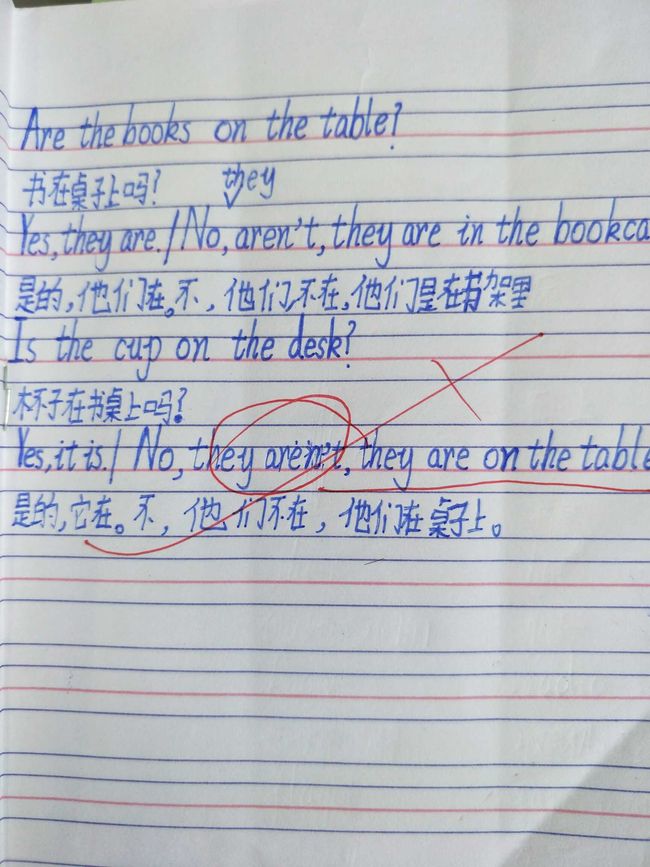 Are the books on the table?
书在桌子上吗?
they
Yes, they are. / No, aren't, they are in the bookca
是的,他们在。不,他们不在,他们是在书架里
Is the cup on the desk?
杯子在书桌上吗?
Yes, it is. / No, they aren't, they are on the table
是的,它在。不,他们不在,他们在桌子上。